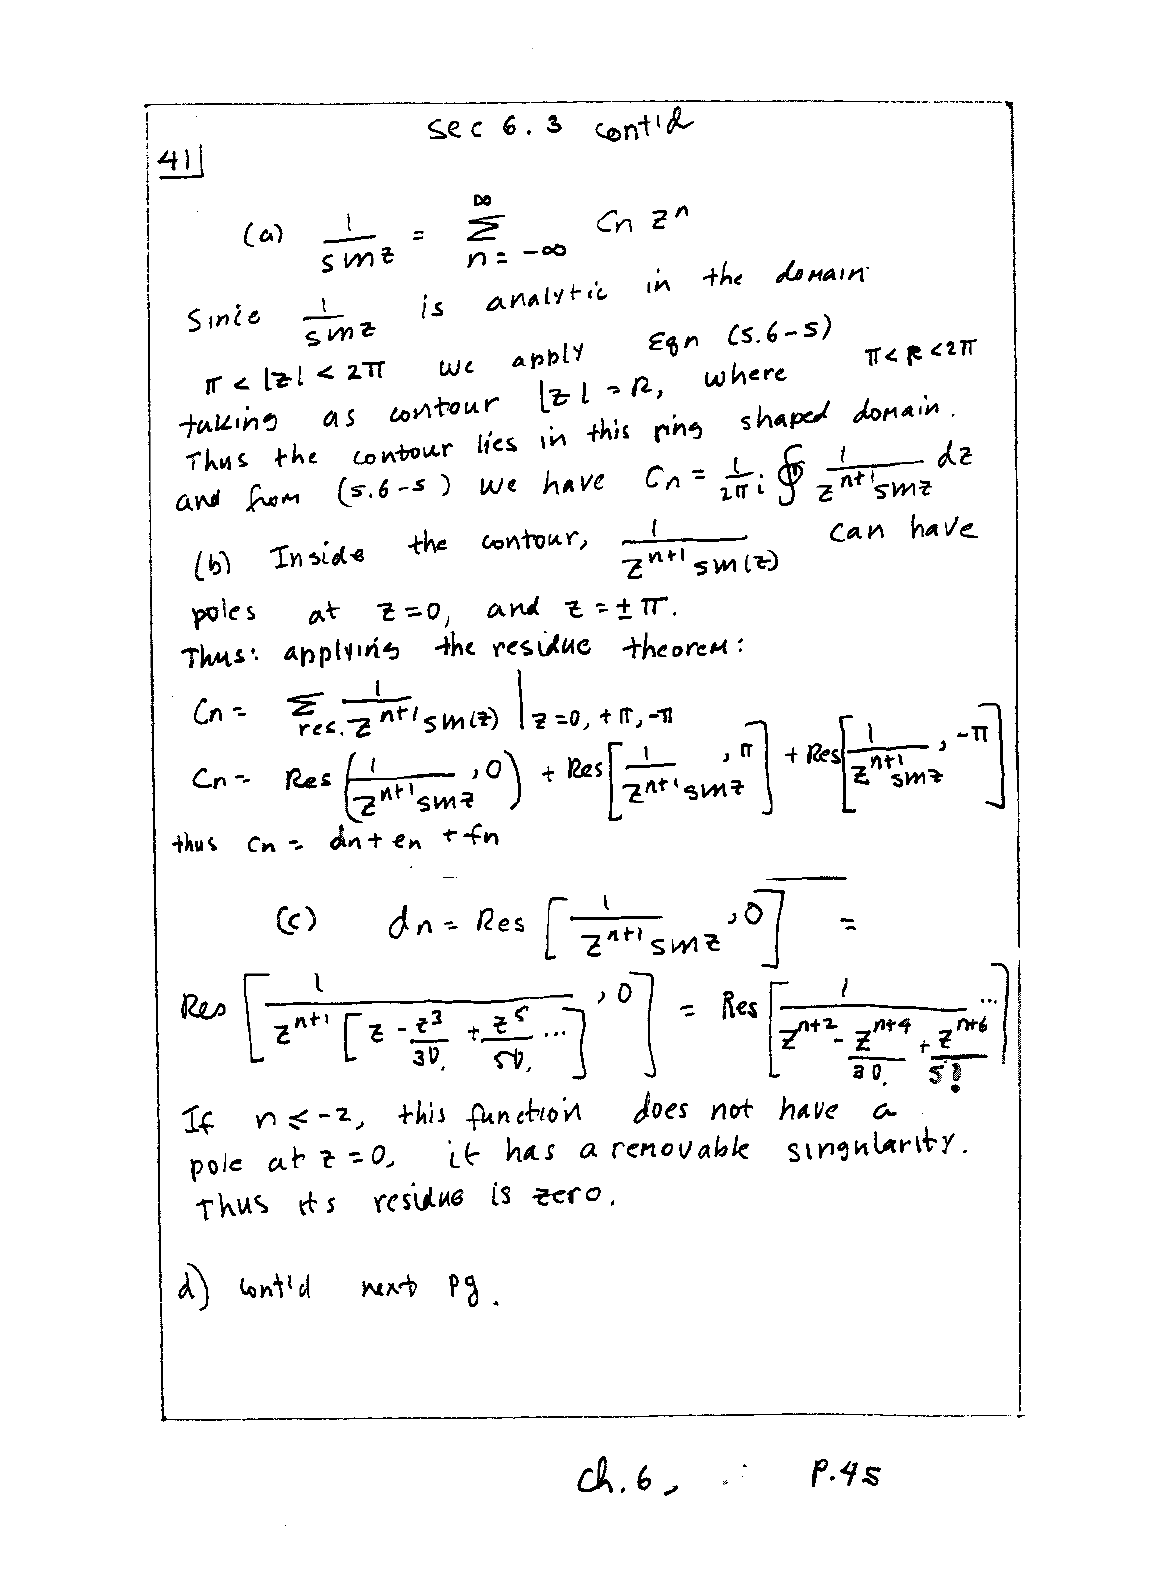 Sec 6.3 cont'd
41
(a) 1/sin z = ∑_{n=-∞}^{∞} Cn z^n
Since 1/sin z is analytic in the domain
π < |z| < 2π we apply Eqn (5.6-5)
taking as contour |z| = R, where π<R<2π
Thus the contour lies in this ring shaped domain.
and from (5.6-5) we have Cn = 1/2πi ∮ 1/(z^{n+1} sin z) dz
(b) Inside the contour, 1/(z^{n+1} sin(z)) can have
poles at z=0, and z = ± π.
Thus: applying the residue theorem:
Cn = ∑ res. 1/(z^{n+1} sin(z)) | z=0, +π, -π
Cn = Res (1/(z^{n+1} sin z), 0) + Res [1/(z^{n+1} sin z), π] + Res [1/(z^{n+1} sin z), -π]
thus Cn = dn + en + fn
(c) dn = Res [1/(z^{n+1} sin z), 0] =
Res [1/(z^{n+1} [z - z^3/3! + z^5/5! ...]), 0] = Res [1/(z^{n+2} - z^{n+4}/3! + z^{n+6}/5! ...)]
If n ≤ -2, this function does not have a
pole at z = 0, it has a removable singularity.
Thus its residue is zero.
d) cont'd next pg.
Ch. 6, P.45